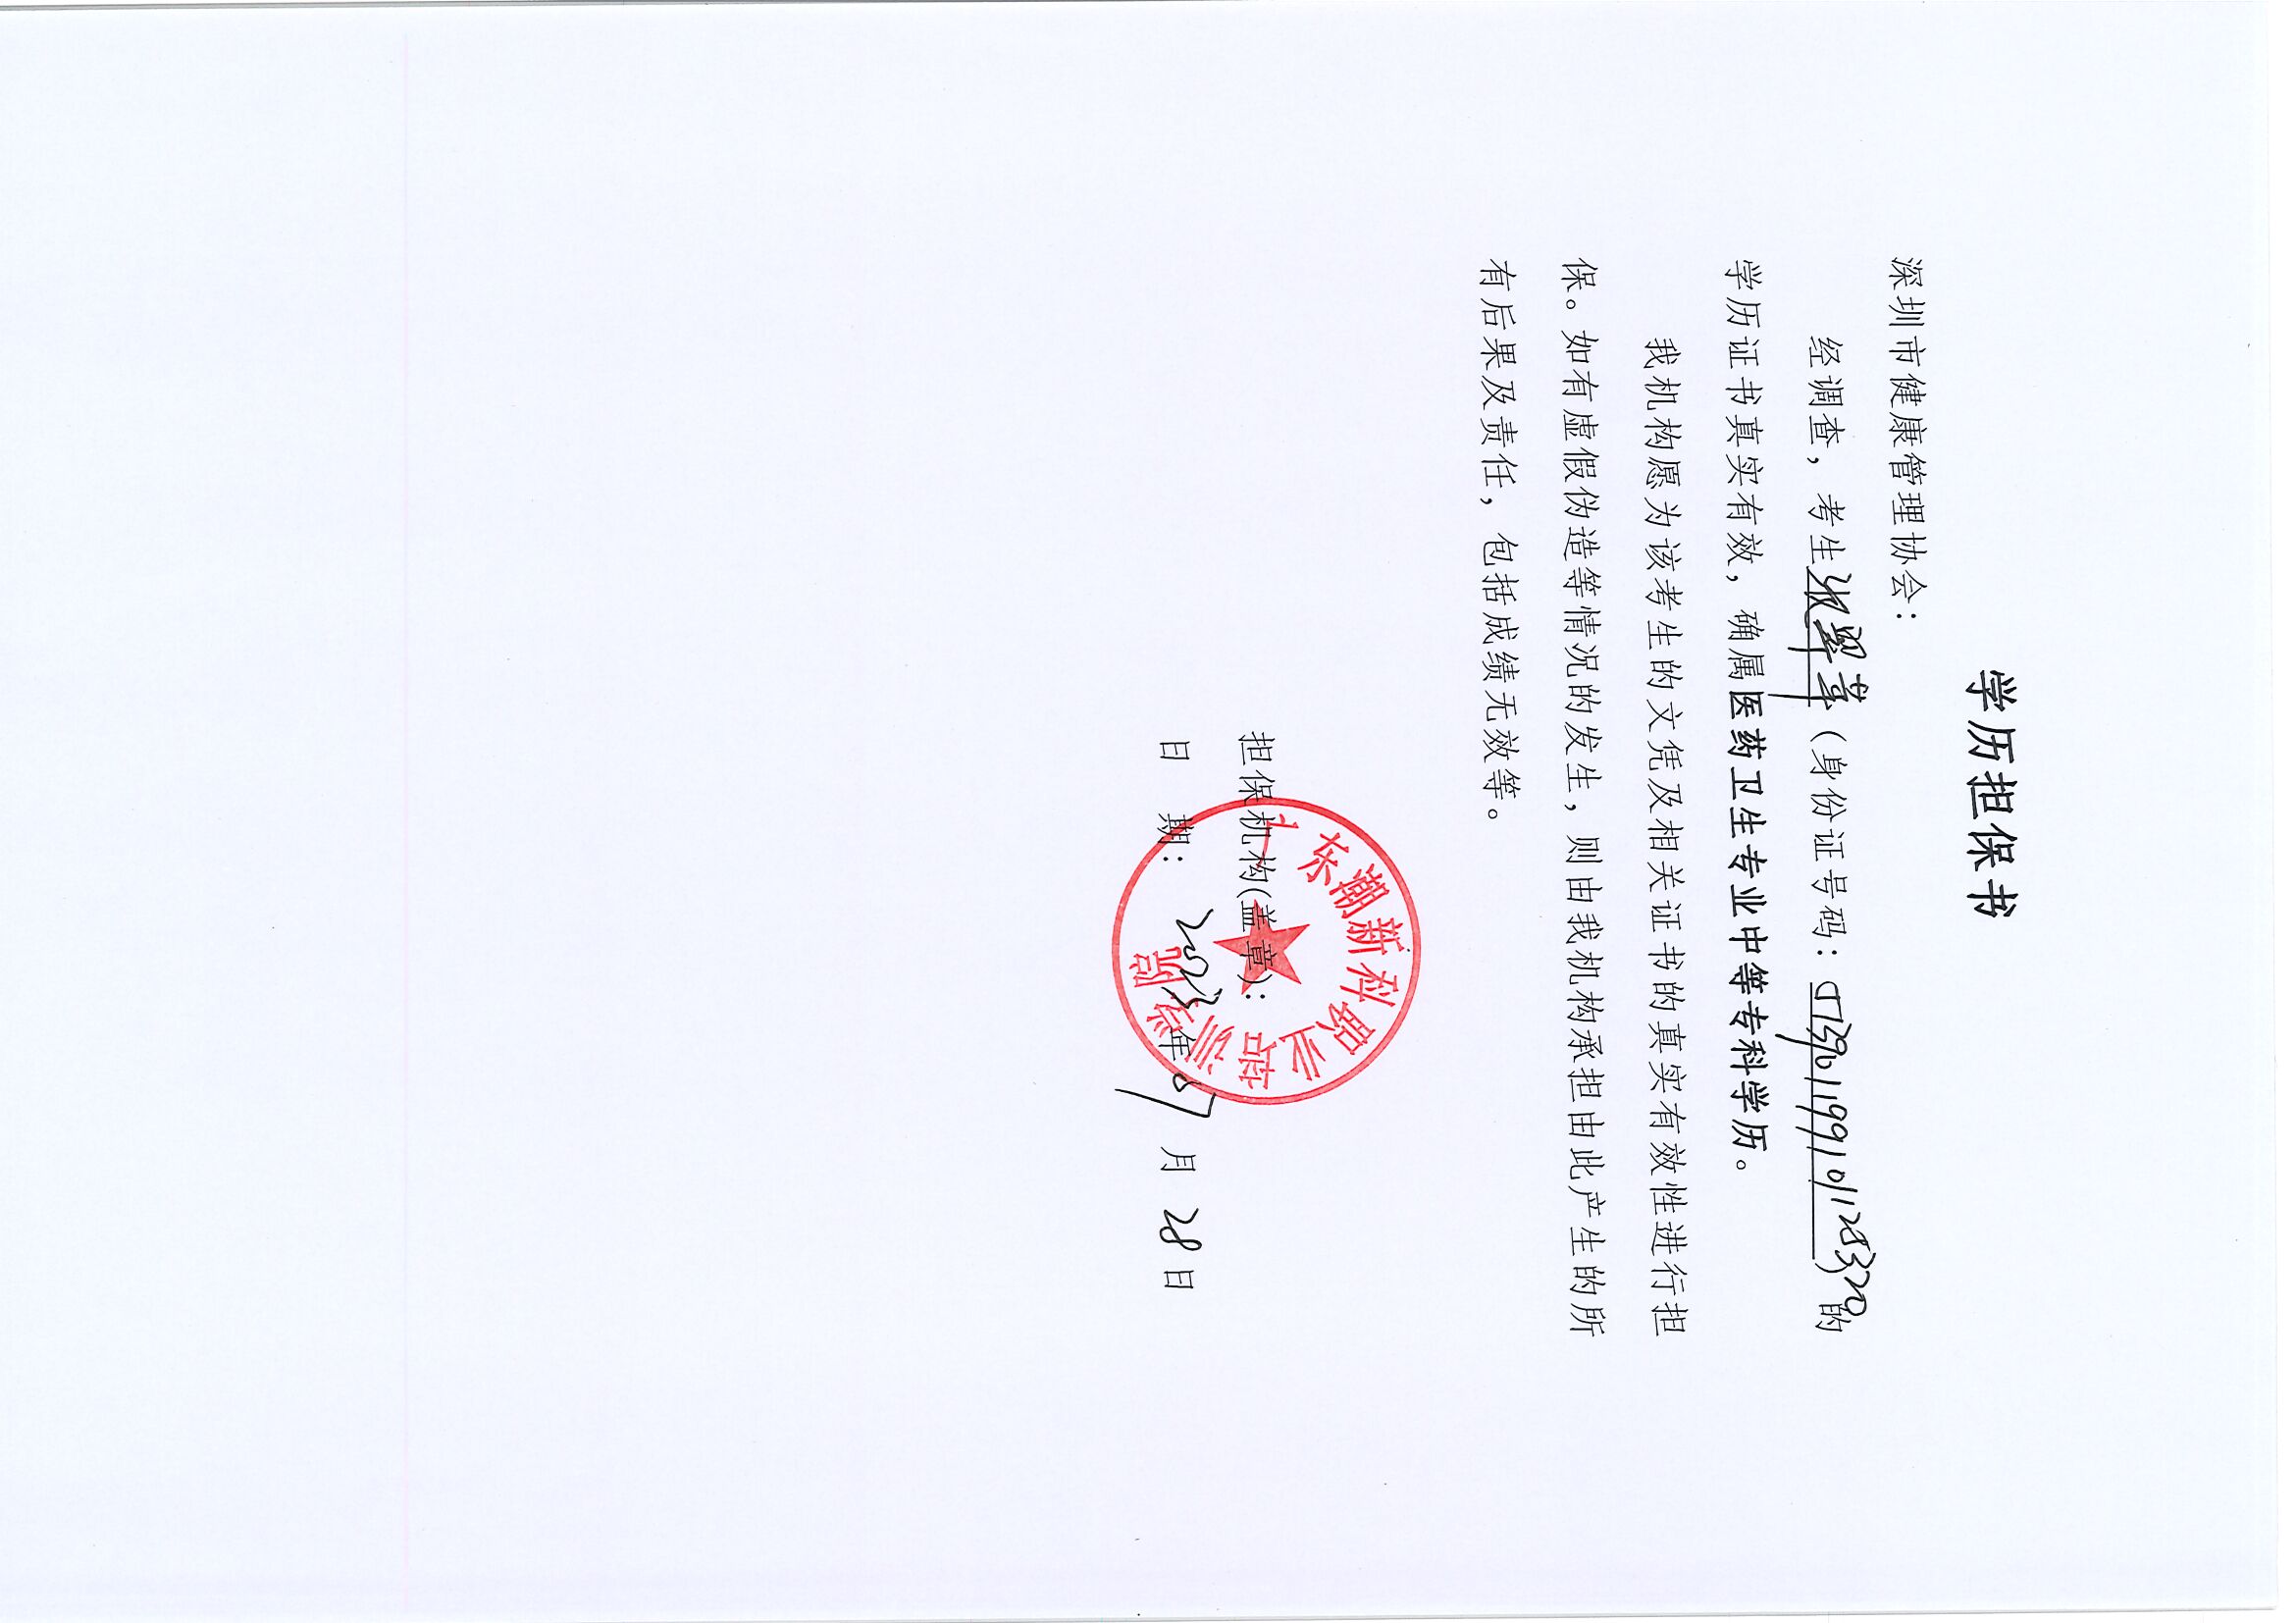 学历担保书
深圳市健康管理协会：
经调查，考生张翠苹（身份证号码：）的
学历证书真实有效，确属医药卫生专业中等专科学历。
我机构愿为该考生的文凭及相关证书的真实有效性进行担
保。如有虚假伪造等情况的发生，则由我机构承担由此产生的所
有后果及责任，包括成绩无效等。
担保机构(盖章)：
广东潮新科职业培训学院
日 期： 年07月28日